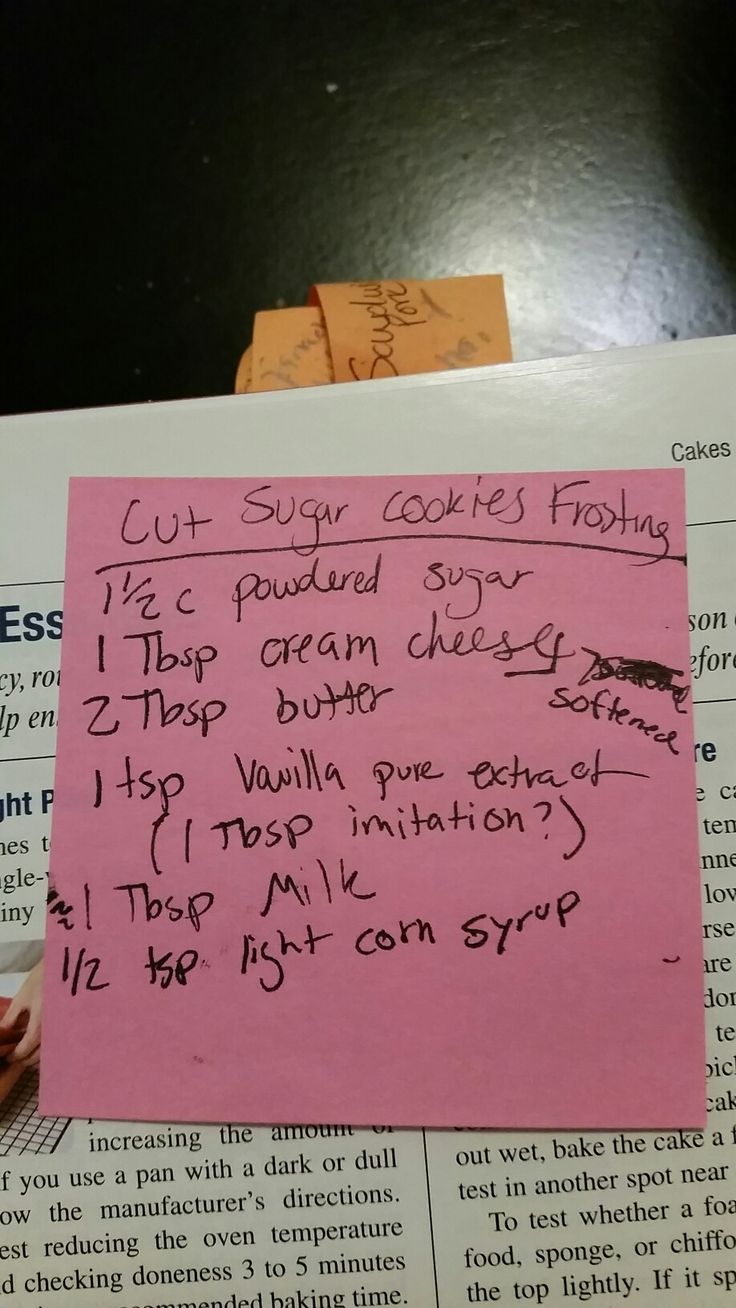 Sandwi
Pork
Cakes
Cut Sugar Cookies Frosting
1 1/2 c powdered sugar
1 Tbsp cream cheese
softened
2 Tbsp butter
1 tsp Vanilla pure extract
(1 Tbsp imitation?)
≈1 Tbsp Milk
1/2 tsp light corn syrup
Ess
cy, rot
lp en
ght P
nes t
gle-
iny
son
efore
re
e ca
tem
nne
low
rse
are
don
te
pick
cak
increasing the amount of
f you use a pan with a dark or dull
ow the manufacturer's directions.
est reducing the oven temperature
d checking doneness 3 to 5 minutes
mmended baking time.
out wet, bake the cake a f
test in another spot near
To test whether a foa
food, sponge, or chiffo
the top lightly. If it sp